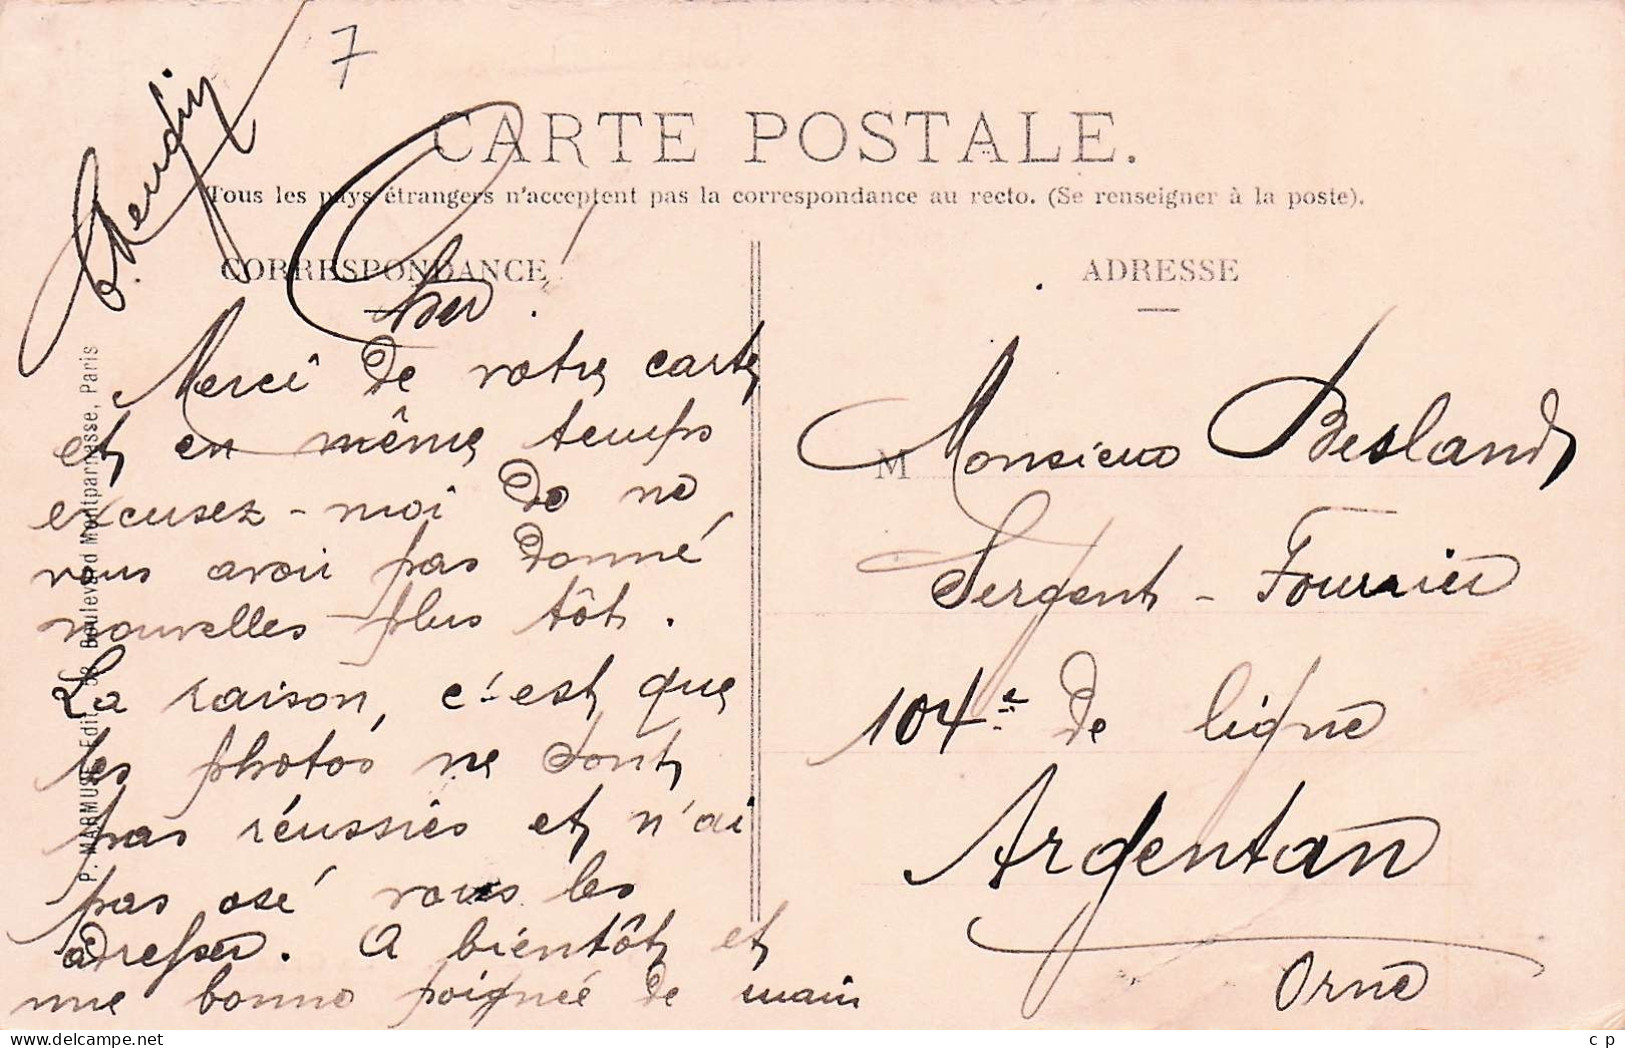 7
CARTE POSTALE.
Tous les pays étrangers n'acceptent pas la correspondance au recto. (Se renseigner à la poste).
CORRESPONDANCE
ADRESSE
Cher.
Merci de votre carte
et en même temps
excusez-moi de ne
vous avoir pas donné
nouvelles plus tôt.
La raison, c'est que
les photos ne sont
pas réussies et n'ai
pas osé vous les
adresser. A bientôt et
une bonne poignée de main
M Monsieur Besland
Sergent-Fourrier
104e de ligne
Argentan
Orne
P. MARMUSE, Edit., 58, Boulevard Montparnasse, Paris
c p